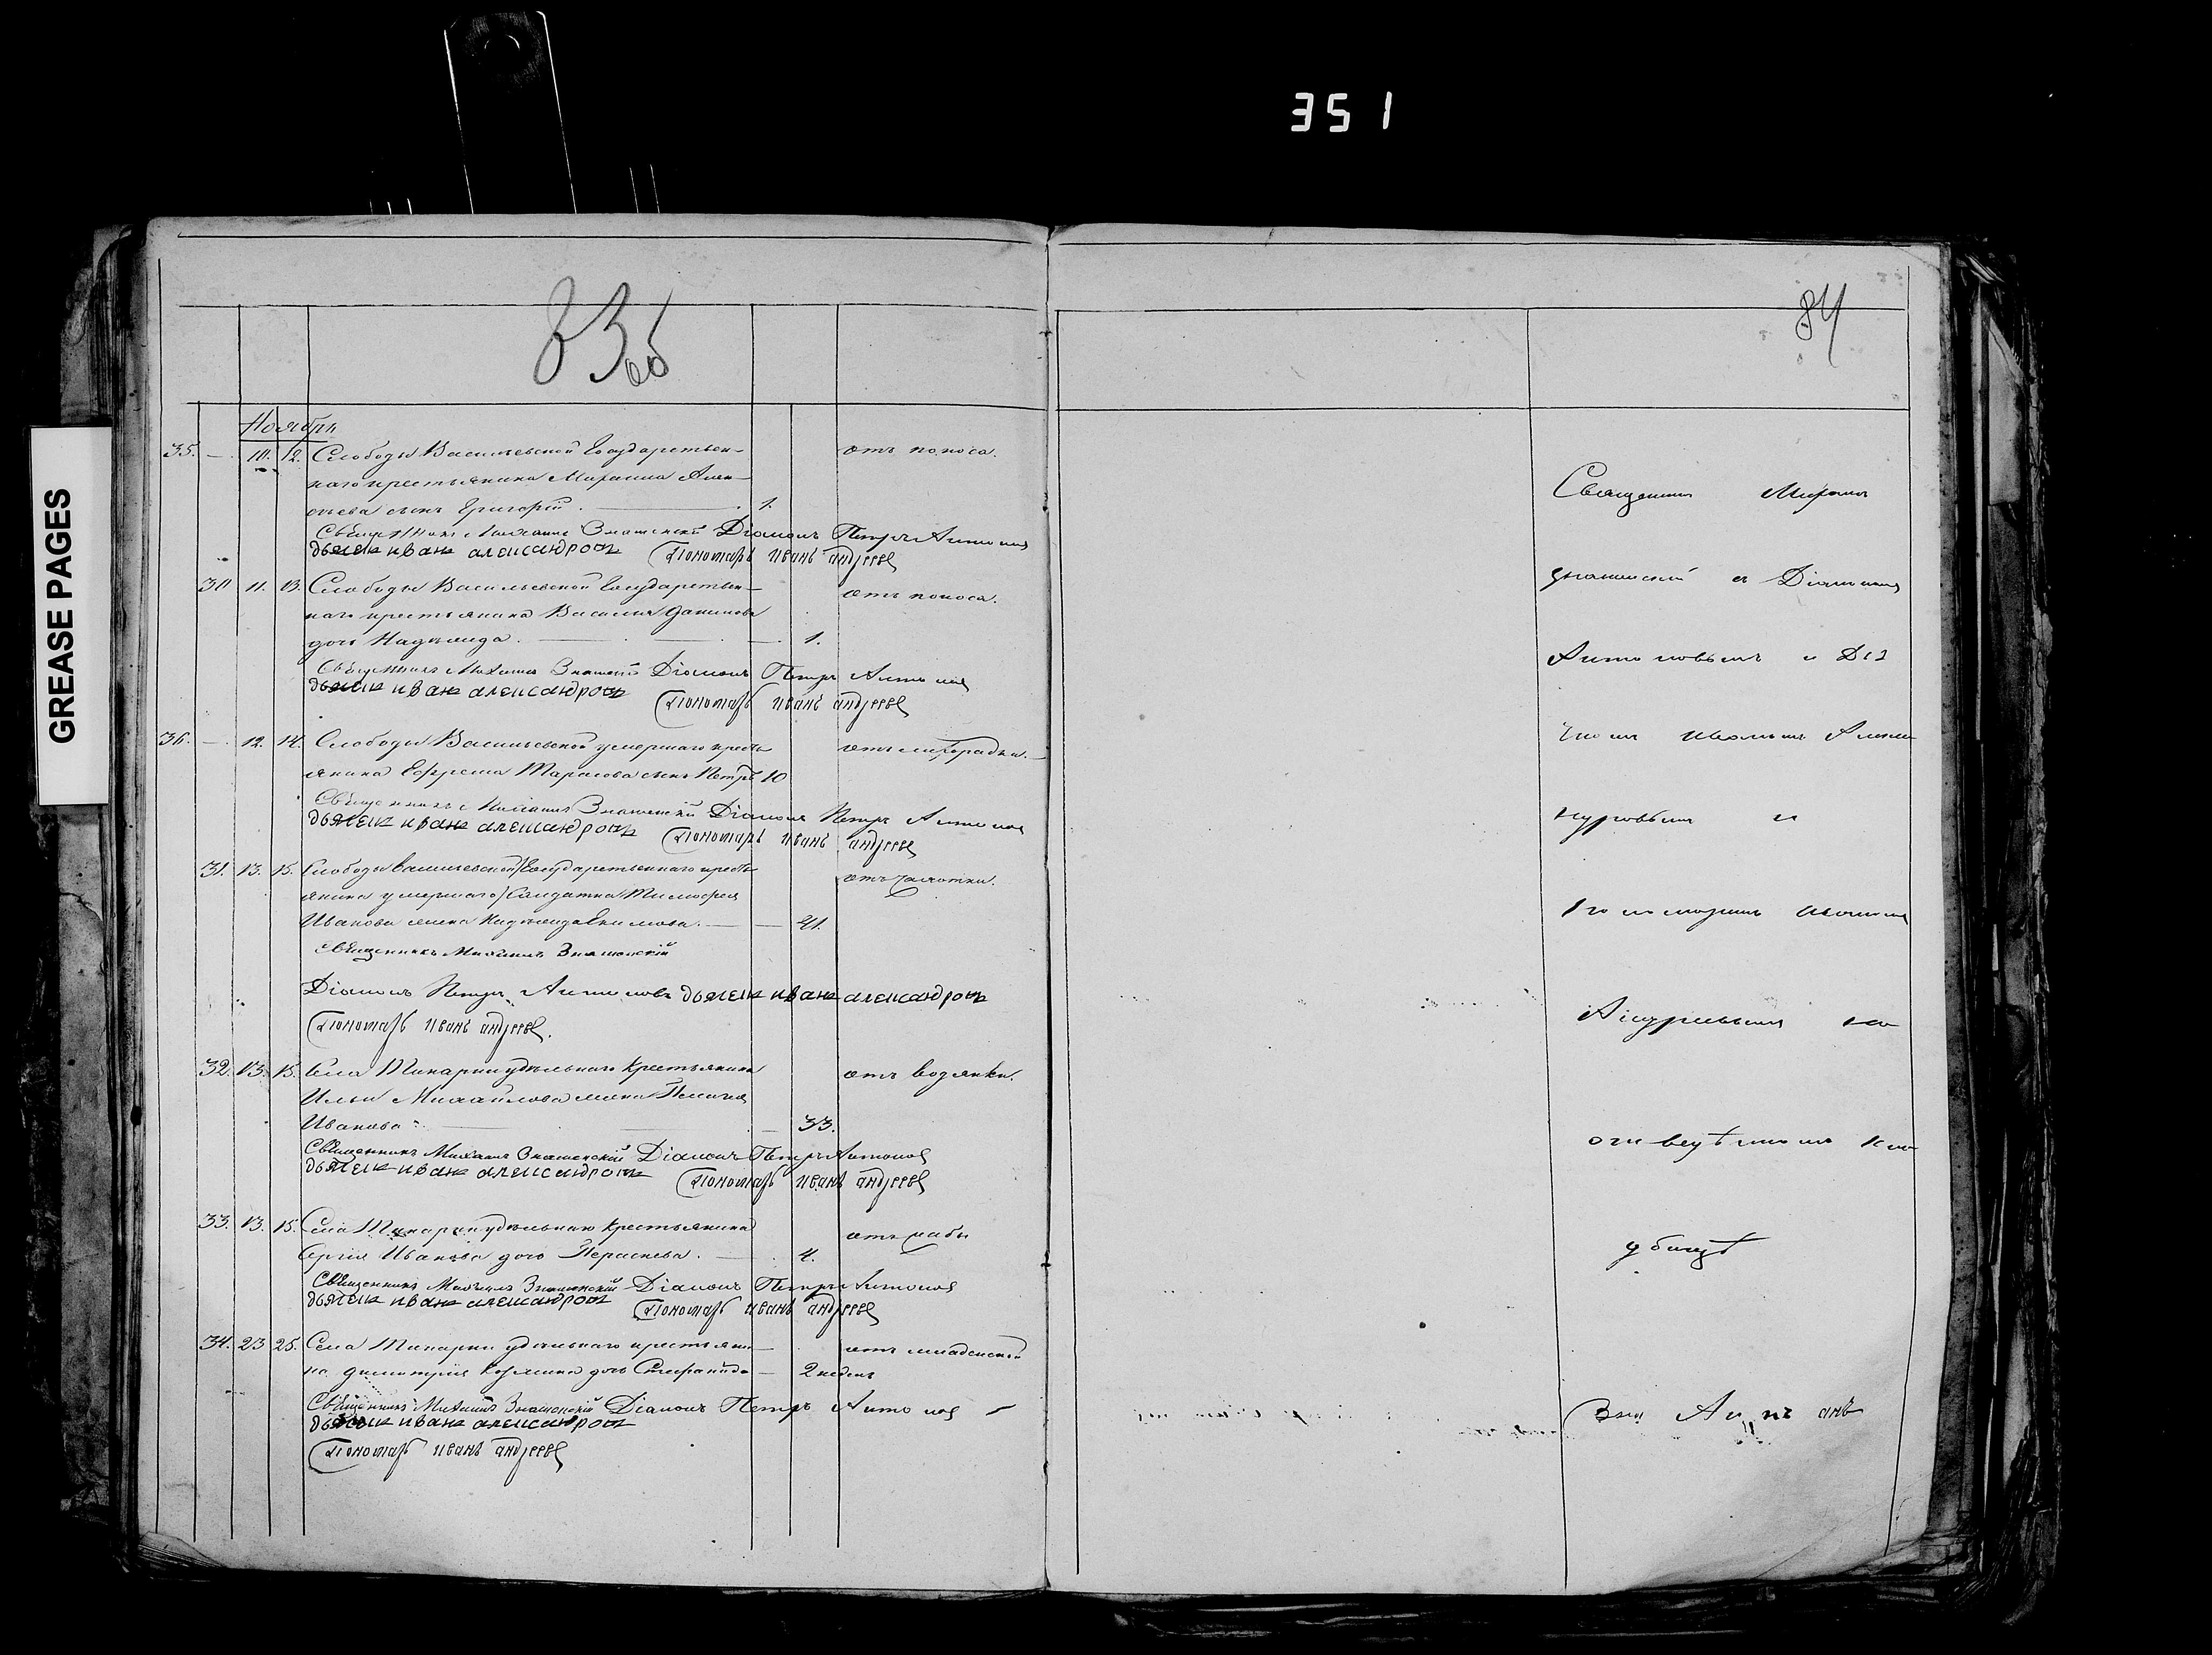 351
GREASE PAGES
83об
84
Ноябрь
35. — 10. 12. Слободы Васильевской Государствен-
наго крестьянина Марамка Алек-
сѣева сынъ Григорій. — 1. отъ поноса.
Священникъ Михаилъ Знаменскій Діаконъ Петръ Антоновъ
дьячекъ иванъ александровъ Пономарь иванъ андреевъ
30 11. 13. Слободы Васильевской Государствен-
наго крестьянина Василія Данилова
дочь Надежда. — 1. отъ поноса.
Священникъ Михаилъ Знаменскій Діаконъ Петръ Антоновъ
дьячекъ иванъ александровъ Пономарь иванъ андреевъ
36. — 12. 14. Слободы Васильевской умершаго кресть
янина Ефрема Тарасова сынъ Петръ 10 отъ лихорадки.
Священникъ Михаилъ Знаменскій Діаконъ Петръ Антоновъ
дьячекъ иванъ александровъ Пономарь иванъ андреевъ
31. 13. 15. Слободы Васильевской /Государственнаго кресть
янина умершаго/ Солдатка Тимофея
Иванова жена Надежда Екимова. — 41. отъ чахотки.
Священникъ Михаилъ Знаменскій
Діаконъ Петръ Антоновъ дьячекъ иванъ александровъ
Пономарь иванъ андреевъ.
32. 13. 15. Села удѣльнаго крестьянина
Ильи Михайлова жена
Иванова. — 33. отъ водянки.
Священникъ Михаилъ Знаменскій Діаконъ Петръ Антоновъ
дьячекъ иванъ александровъ Пономарь иванъ андреевъ
33. 13. 15. Села удѣльнаго крестьянина
Сергія Иванова дочь Параскева. — 4.
Священникъ Михаилъ Знаменскій Діаконъ Петръ Антоновъ
дьячекъ иванъ александровъ Пономарь иванъ андреевъ
34. 23 25. Села удѣльнаго крестьяни-
на Димитрія Козмина дочь Стефанида — 2 недѣль отъ младенской
Священникъ Михаилъ Знаменскій Діаконъ Петръ Антоновъ
дьячекъ иванъ александровъ
Пономарь иванъ андреевъ
Священникъ
Знаменскій съ Діакономъ
Антоновымъ и Дья
чкомъ Иваномъ Алекса
ндровымъ и
Пономаремъ Иваномъ
Андреевымъ на
кла
дбищѣ